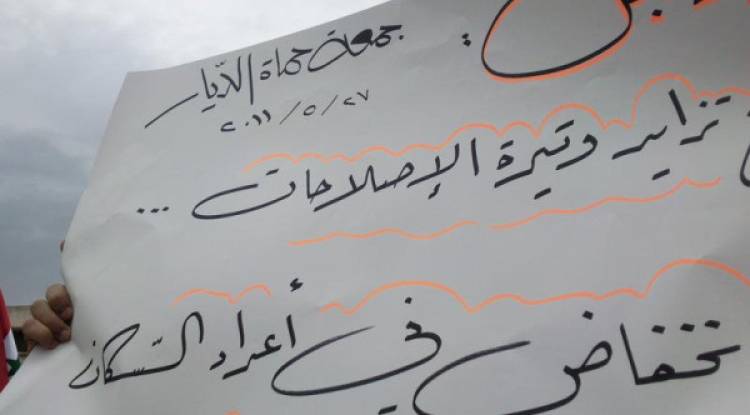 جمعة حماة الديار
٢٠١١/٥/٢٧
تزايد وتيرة الإصلاحات ...
تخفاض في أعداد السكان